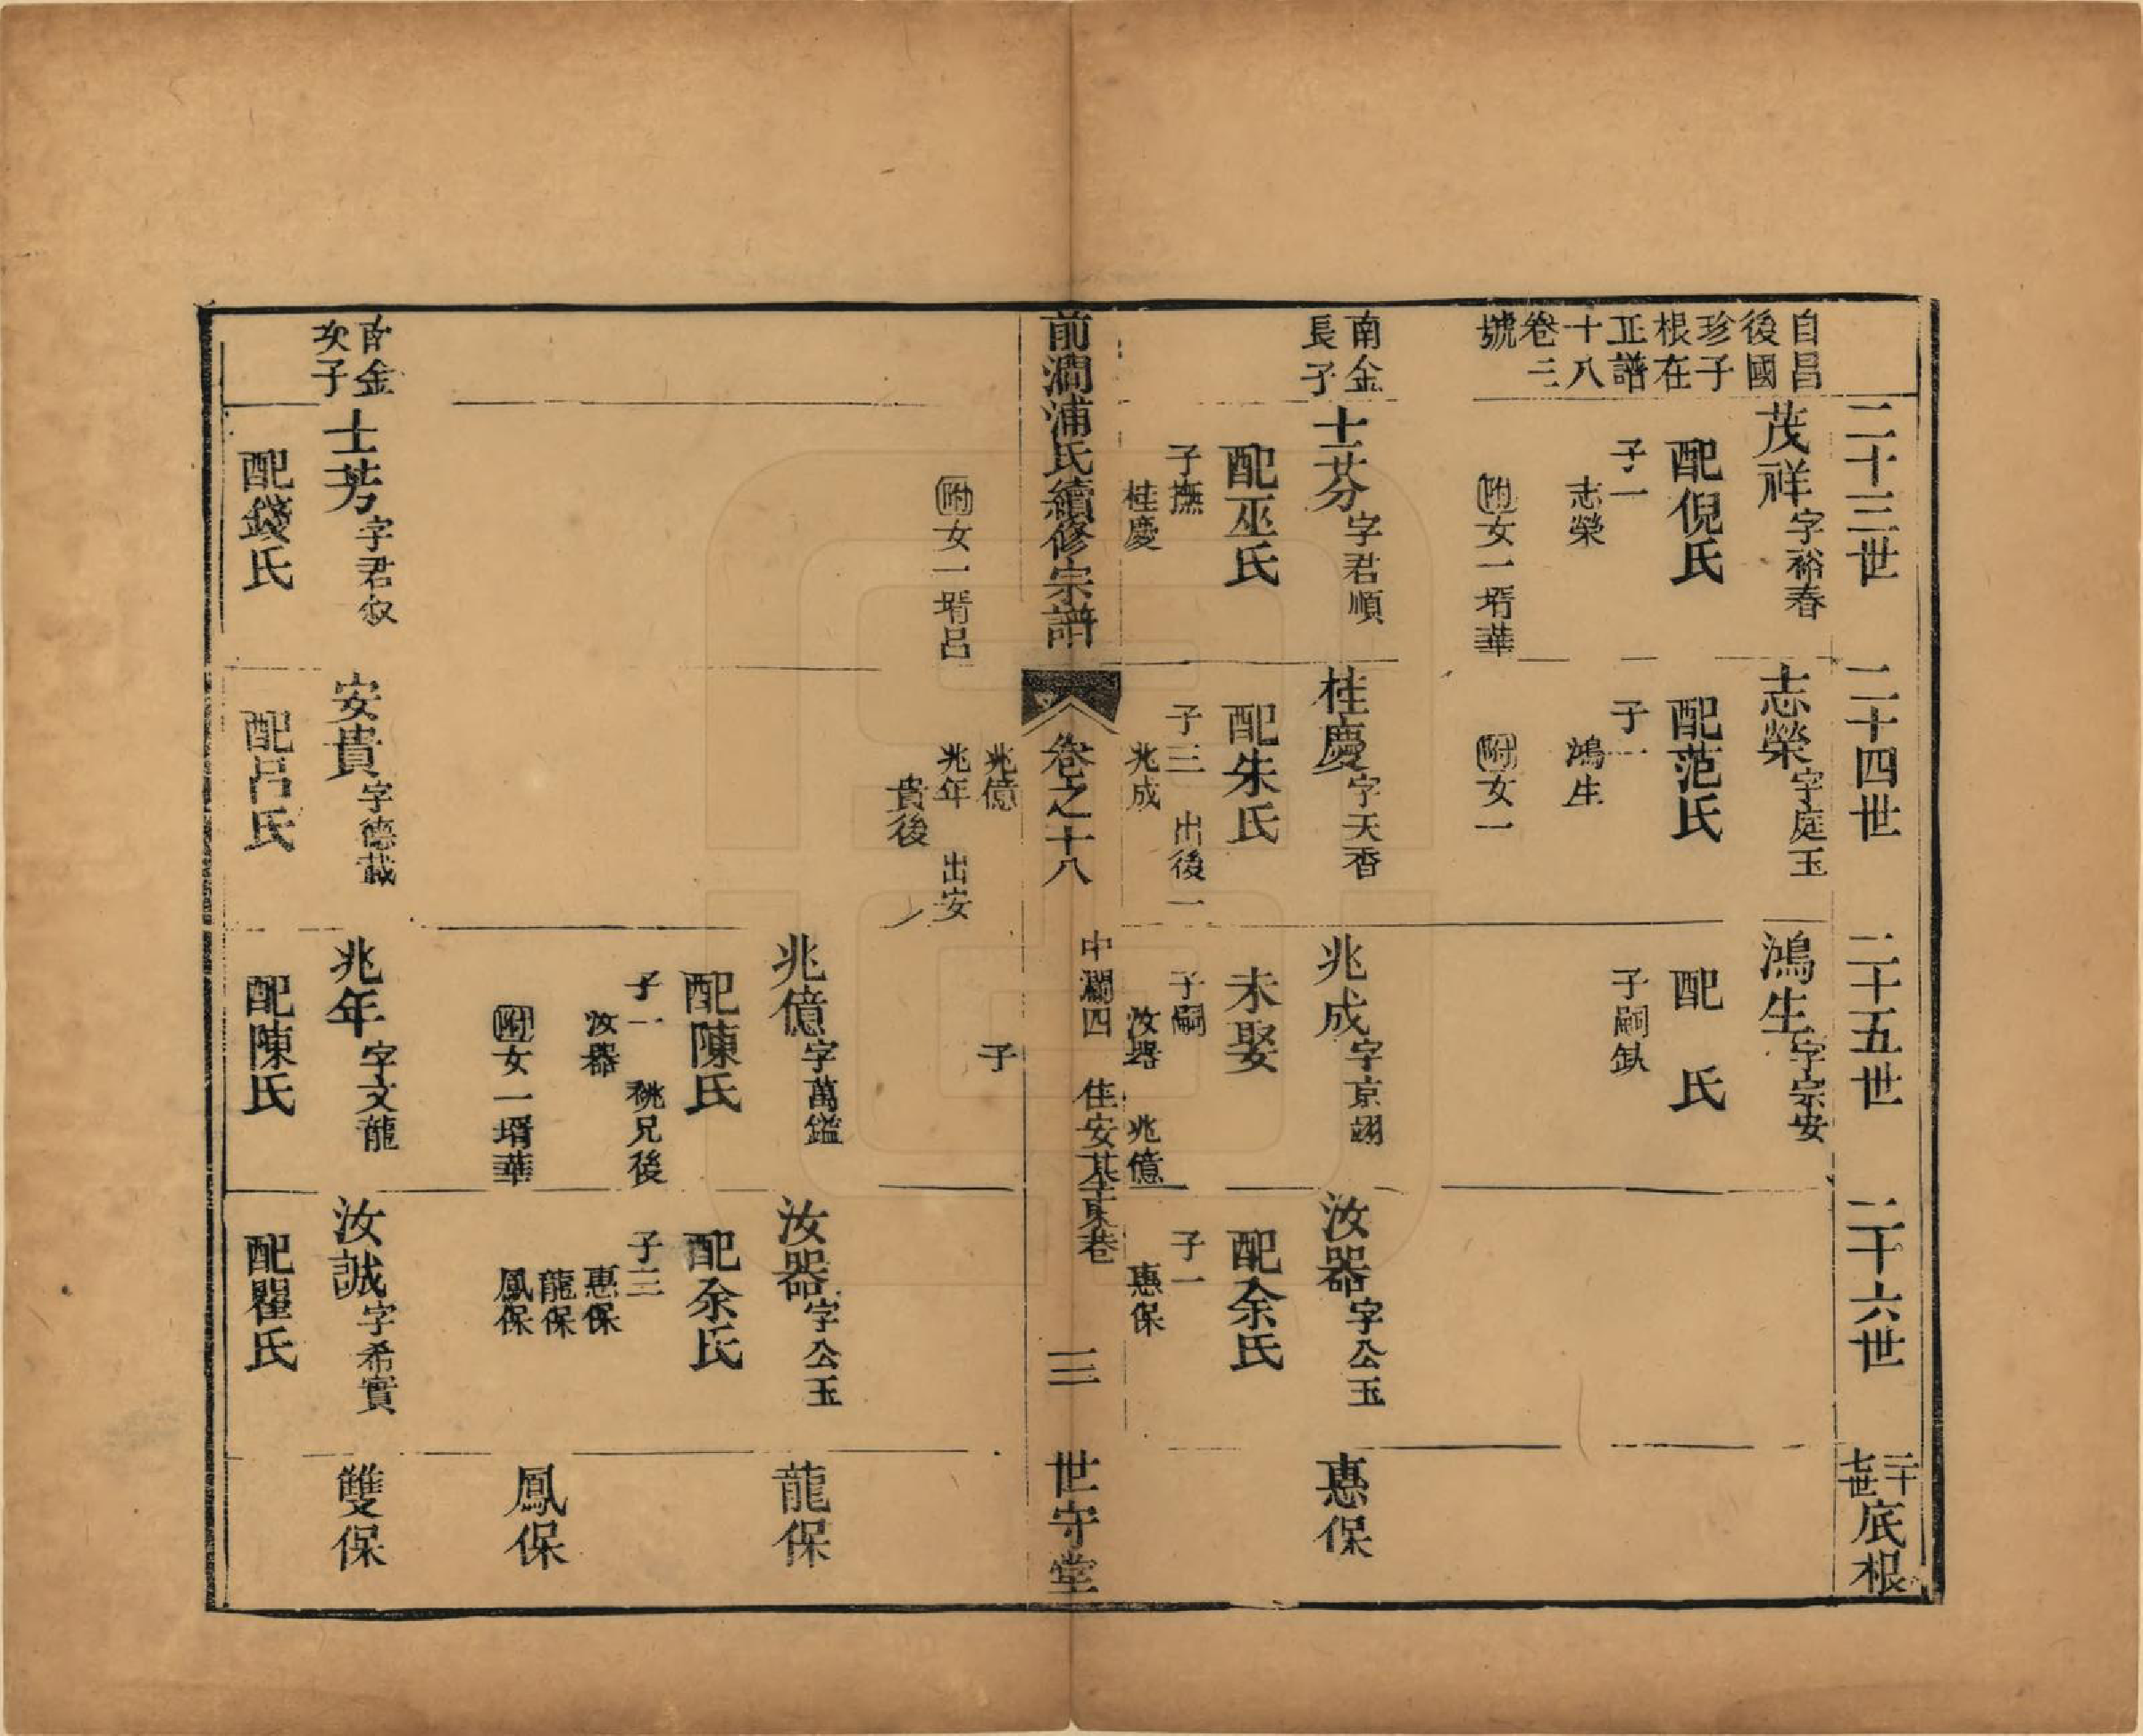 二十三世
二十四世
二十五世
二十六世
二十七世底根
自昌
後國
珍子
根在
正譜
十八
卷三
號
茂祥字裕春
配倪氏
子一
志榮
附女一壻華
志榮字庭玉
配范氏
子一
鴻生
附女一
鴻生字宗安
配 氏
子嗣缺
南金
長子
士芬字君順
配巫氏
子撫
桂慶
附女一壻呂
桂慶字天香
配朱氏
子三 出後一
兆成
兆億
兆年 出安
貴後
兆成字京翊
未娶
子嗣
汝器 兆億
子
汝器字公玉
配余氏
子一
惠保
惠保
前澗浦氏續修宗譜
卷之十八
中瀾四 住安基東巷
三
世守堂
兆億字萬鎰
配陳氏
子一 祧兄後
汝器
附女一壻華
汝器字公玉
配余氏
子三
惠保
龍保
鳳保
龍保
鳳保
南金
次子
士芳字君叙
配錢氏
安貴字德載
配呂氏
兆年字文龍
配陳氏
汝誠字希實
配瞿氏
雙保